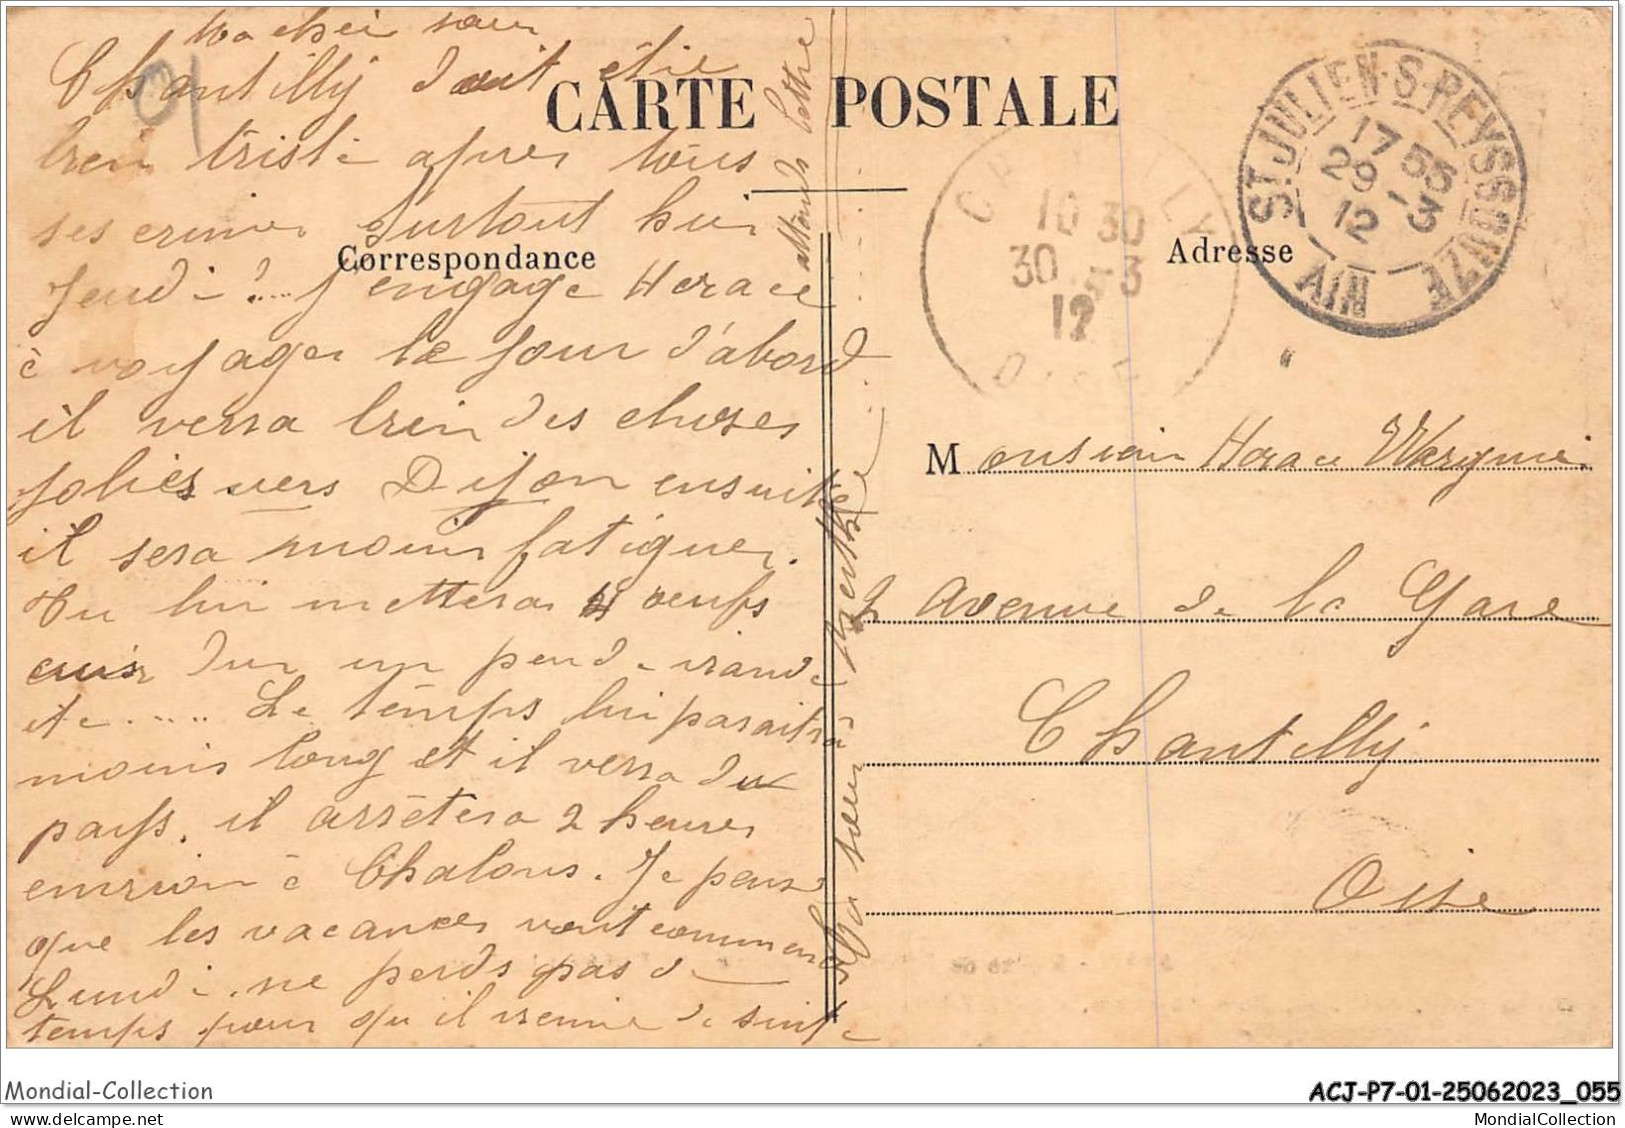 Ma cher sœur
Chantilly doit être
bien triste apres tous
ses crimes surtout hier
Jeudi !.... J'engage Horace
à voyager le jour d'abord
il verra bien des choses
jolies vers Dijon ensuite
il sera moins fatiguer.
Tu lui mettera 4 oeufs
cuis dur un peu de viande
etc ..... Le temps lui paraitra
moins long et il verra du
pays. il arrêtera 2 heures
environ à Chalons. Je pense
que les vacances vont commencé
Lundi. ne perds pas de
temps pour qu'il vienne de suite
attends lettre
Ta sœur
Marthe
CARTE POSTALE
Correspondance
Adresse
CHANTILLY
10 30
30 - 3
12
OISE
ST. JULIEN-S-REYSSOUZE
17 55
29 - 3
12
AIN
Monsieur Horace
Avenue de la Gare
Chantilly
Oise
01
Mondial-Collection
ACJ-P7-01-25062023_055
MondialCollection